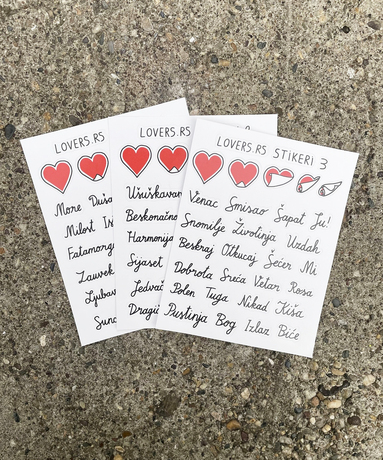 LOVERS.RS
More Duša
Milost
Fatamorga
Zauvek
Ljubav
Sunc
LOVERS.RS
Ušuškavan
Beskonačno
Harmonija
Sijaset
Jedva
Dragi
LOVERS.RS STIKERI 3
Venac Smisao Šapat Ju!
Snomilje Životinja Uzdah
Beskraj Otkucaj Šećer Mi
Dobrota Sreća Vetar Rosa
Polen Tuga Nikad Kiša
Pustinja Bog Izlaz Biće